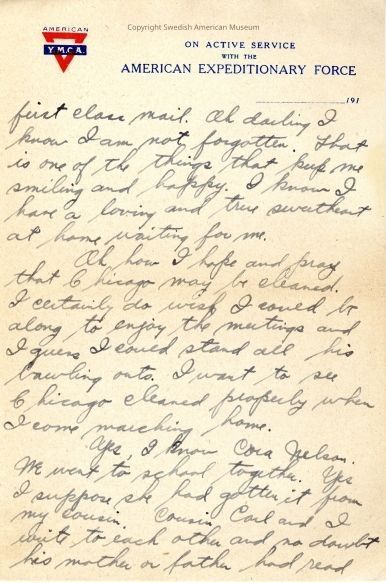 Copyright Swedish American Museum
AMERICAN
Y.M.C.A.
ON ACTIVE SERVICE
WITH THE
AMERICAN EXPEDITIONARY FORCE
191
first class mail. Oh darling I
know I am not forgotten. That
is one of the things that keep me
smiling and happy. I know I
have a loving and true sweetheart
at home waiting for me.
Oh how I hope and pray
that Chicago may be cleaned.
I certainly do wish I could be
along to enjoy the meetings and
I guess I could stand all his
bawling outs. I want to see
Chicago cleaned properly when
I come marching home.
Yes, I know Cora Nelson.
We went to school together. Yes
I suppose she had gotten it from
my cousin. Cousin Carl and I
write to each other and no doubt
his mother or father had read